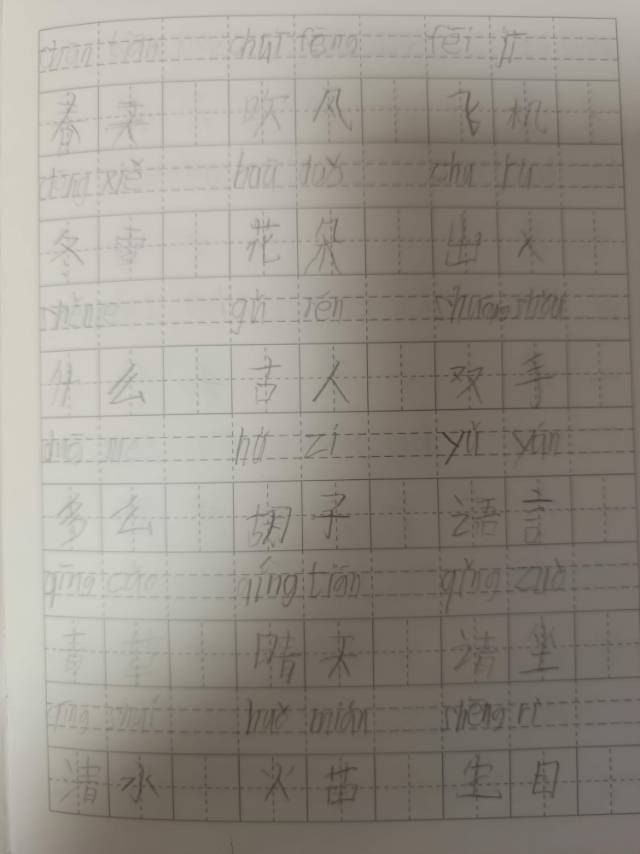 chūn tiān chuī fēng fēi jī
春 天 吹 风 飞 机
dōng xuě huā duǒ chū rù
冬 雪 花 朵 出 入
shén me gǔ rén shuāng shǒu
什 么 古 人 双 手
duō me hú zi yǔ yán
多 么 胡 子 語 言
qīng cǎo qíng tiān qǐng zuò
青 草 晴 天 请 坐
qīng shuǐ huǒ miáo shēng rì
清 水 火 苗 生 日